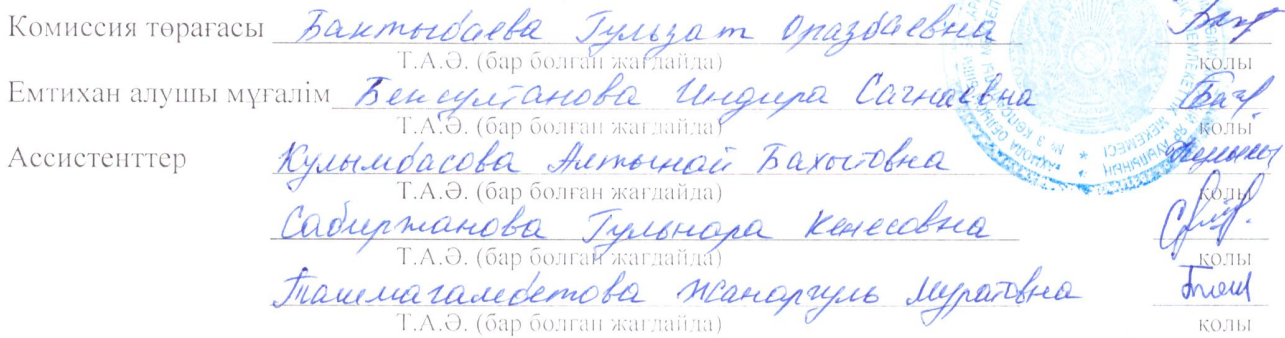 Комиссия төрағасы Бактыбаева Гульзат Оразбаевна
Т.А.Ә. (бар болған жағдайда) қолы
Емтихан алушы мұғалім Бенсултанова Индира Сагнаевна
Т.А.Ә. (бар болған жағдайда) қолы
Ассистенттер Кулымбасова Алтынай Бахытовна
Т.А.Ә. (бар болған жағдайда) қолы
Сабиржанова Гульнара Кенесовна
Т.А.Ә. (бар болған жағдайда) қолы
Ташмагамбетова Жанаргуль Муратовна
Т.А.Ә. (бар болған жағдайда) қолы